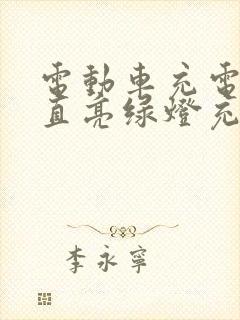 電動車充電
直亮綠燈充
李永寧